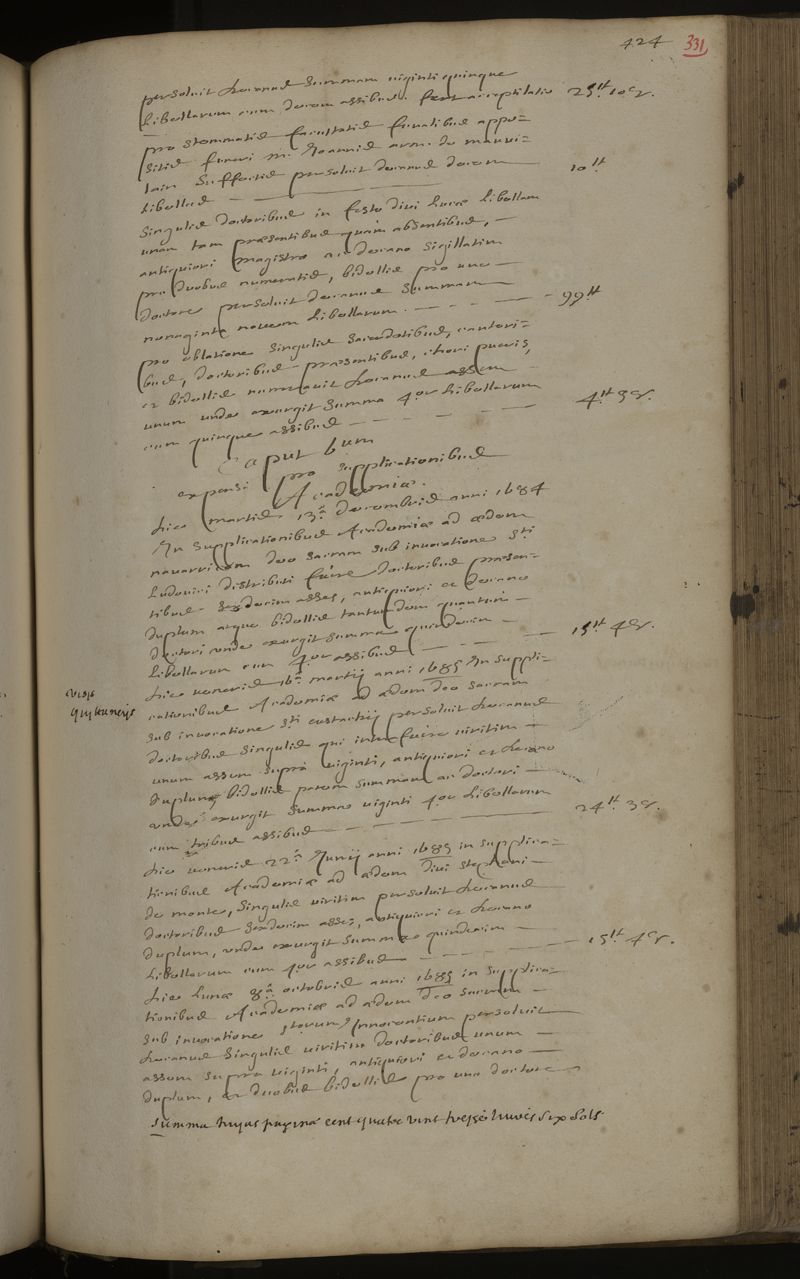 424 331
persoluit decanus summam viginti quinque
libellarum cum decem assibus. fert acceptilatio 25lt 10s.
pro stemmatis facultatis funalibus appo=
sitis funeri m. Joannis arm. de mauvi=
lain suffectis persoluit decanus decem
libellas 10lt
Singulis doctoribus in festo divi Lucæ libellam
unam tam præsentibus quàm absentibus,
antiquiori magistro ac decano sigillatim
pro duobus numeratis, bidellis pro uno
doctore persoluit decanus summam
nonaginta novem libellarum. 99lt
pro oblatione singulis sacerdotibus, cantori=
bus, doctoribus præsentibus, chori pueris,
et bidellis numeravit decanus assem
unum unde exurgit summa 4or libellarum
cum quinque assibus 4lt 5s.
Caput 6um
expensi pro supplicationibus
Academiæ.
die martis 13a decembris anni 1684
In supplicationibus Academiæ ad ædem
navarricam deo sacram sub invocatione Sti
Ludovici distributi fuere doctoribus præsen=
tibus sexdecim asses, antiquiori et decano
duplum atque bidellis tantumdem quantum
doctori unde exurgit summa quindecim
libellarum cum 4or assibus 15lt 4s.
visis
quittancijs
die veneris 16a martij anni 1685 In suppli=
cationibus Academiæ ad ædem deo sacram
sub invocatione Sti eustachij persoluit decanus
doctoribus singulis qui interfuere viritim
unum assem suprà viginti, antiquiori et decano
duplum, bidellis parem summam ac doctori
unde exurgit summa viginti 4or libellarum
cum tribus assibus 24lt 3s.
die veneris 22a Junij anni 1685 in supplica=
tionibus Academiæ ad ædem divi Stephani
de monte, singulis viritim persoluit decanus
doctoribus sexdecim asses, antiquiori et decano
duplum, unde exurgit summa quindecim
libellarum cum 4or assibus 15lt 4s.
die lunæ 8a octobris anni 1685 in supplica=
tionibus Academiæ ad ædem deo sacram
sub invocatione storum Innocentium persoluit
decanus singulis viritim doctoribus unum
assem supra viginti, antiquiori et decano
duplum, et duobus bidellis pro uno doctore
summa hujus paginæ cent quatre vint treize livres six sols